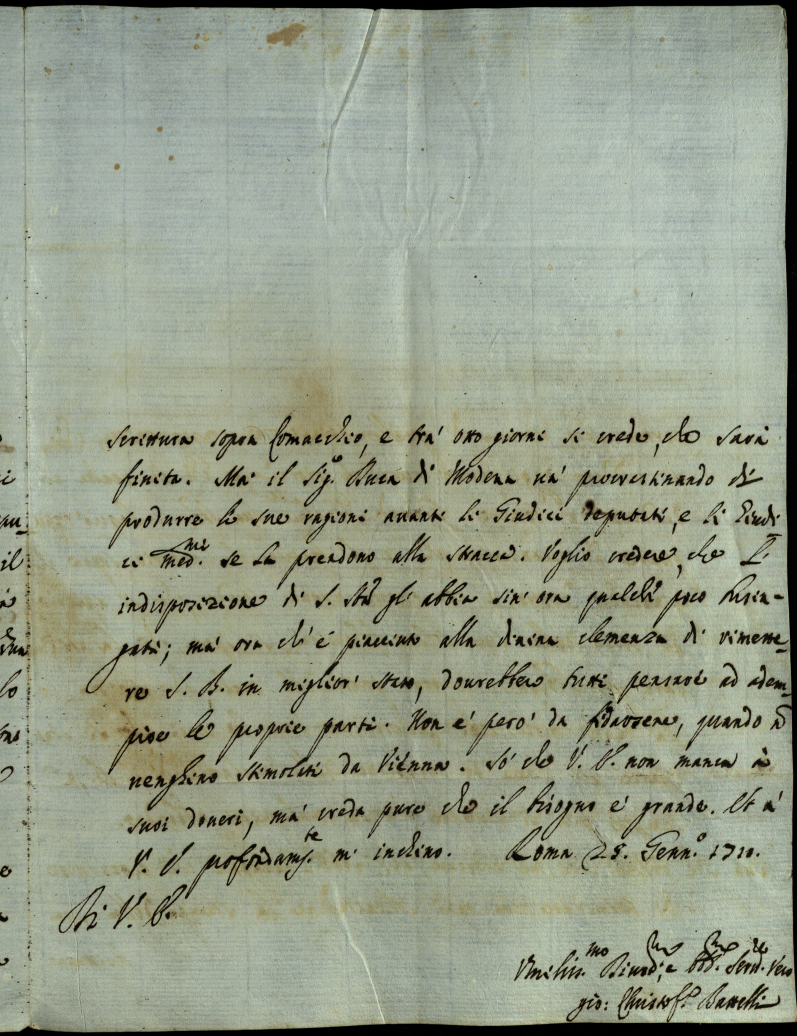 scrittura sopra Comacchio, e trà otto giorni si crede, che sarà
finita. Mà il Sig.r Duca di Modena và procrastinando di
produrre le sue ragioni avanti li Giudici deputati, e li Giudi-
ci med.mi se la prendono alla stracca. Voglio credere, che l'
indisposizione di S. Stà gl' abbia sin' ora qualche poco lusin-
gati; mà ora ch' è piacciuto alla divina clemenza di rimette-
re S. B. in miglior stato, dovrebbero tutti pensare ad adem-
pire le proprie parti. Non è però da fidarsene, quando nō
venghino stimolati da Vienna. Sò che V. E. non manca à
suoi doveri, mà creda pure che il bisogno è grande. Et à
V. E. profōdam.te m' inchino. Roma 25. Genn.o 1710.
Di V. E.
Vmiliss.mo Divot.mo e Obl.mo Serv.re vero
Gio: Christof.o Battelli